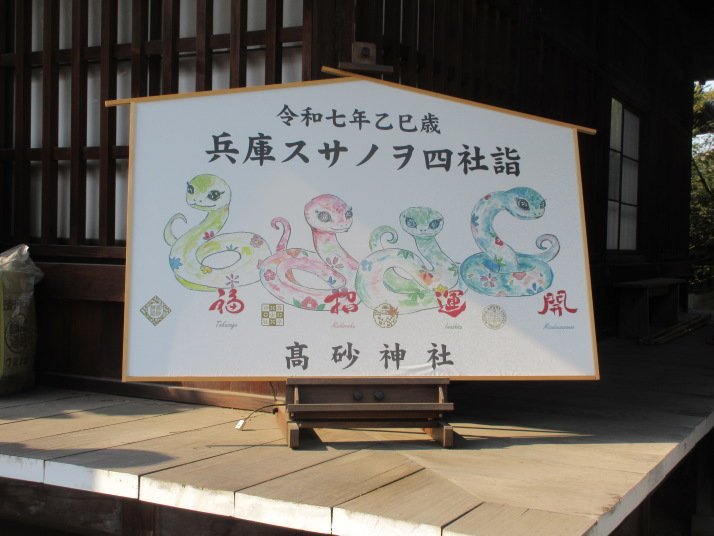 令和七年乙巳歳
兵庫スサノヲ四社詣
福 招 運 開
Takasago
髙砂神社